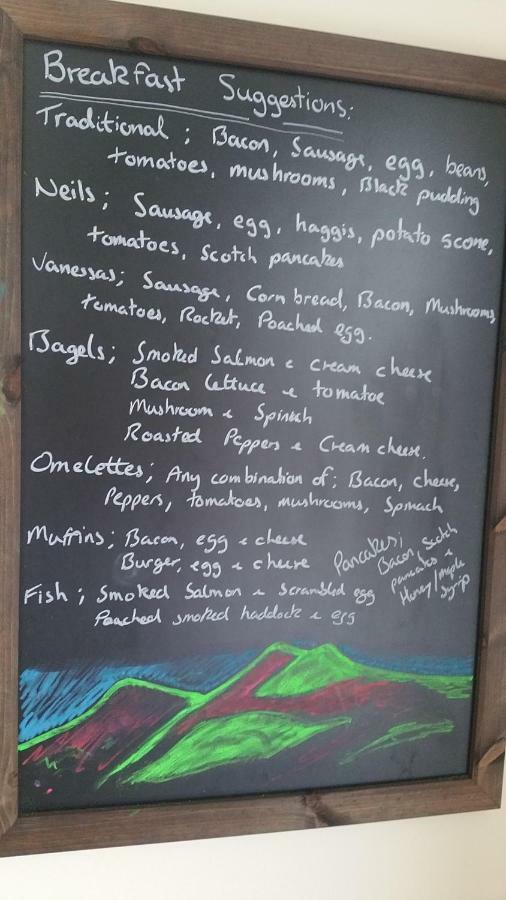 Breakfast Suggestions:
Traditional ; Bacon, Sausage, egg, beans,
tomatoes, mushrooms, Black pudding
Neils ; Sausage, egg, haggis, potato scone,
tomatoes, Scotch pancakes
Vanessas; Sausage, Corn bread, Bacon, Mushrooms,
tomatoes, Rocket, Poached egg.
Bagels; Smoked Salmon & cream cheese
Bacon lettuce & tomatoe
Mushroom & Spinach
Roasted Peppers & Cream cheese.
Omelettes; Any combination of; Bacon, cheese,
Peppers, tomatoes, mushrooms, Spinach
Muffins; Bacon, egg & cheese
Burger, egg & cheese
Pancakes;
Bacon, Scotch
pancakes &
Honey/maple
Syrip
Fish ; Smoked Salmon & Scrambled egg
Poached smoked haddock & egg